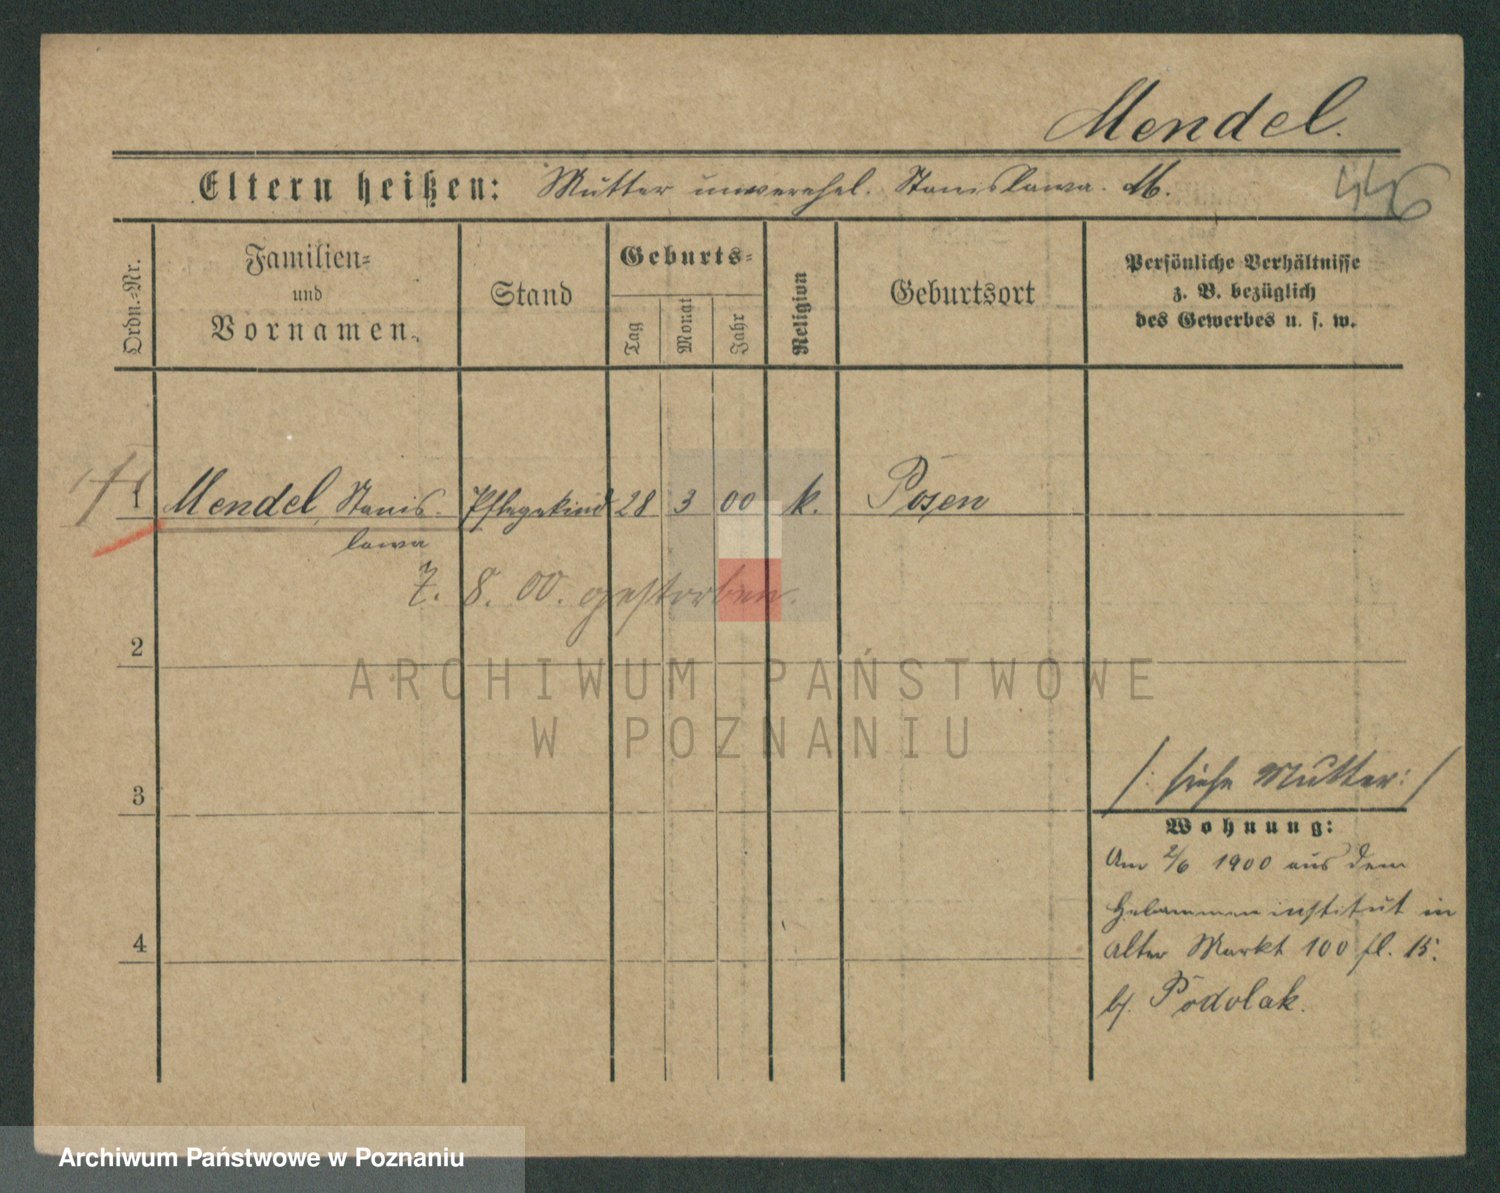 Mendel.
Eltern heißen: Mutter unverehel. Stanislawa. M.
446
Ordn.=Nr.
Familien=
und
Vornamen.
Stand
Geburts=
Tag
Monat
Jahr
Religion
Geburtsort
Persönliche Verhältnisse
z. B. bezüglich
des Gewerbes u. s. w.
1 Mendel, Stanis- Pflegekind 28 3 00 k. Posen
lawa
7. 8. 00. gestorben.
2
ARCHIWUM PAŃSTWOWE
W POZNANIU
3
/: siehe Mutter :/
Wohnung:
Am 2/6 1900 aus dem
Hebammeninstitut in
4
Alter Markt 100 fl. 15.
bei Podolak.
Archiwum Państwowe w Poznaniu